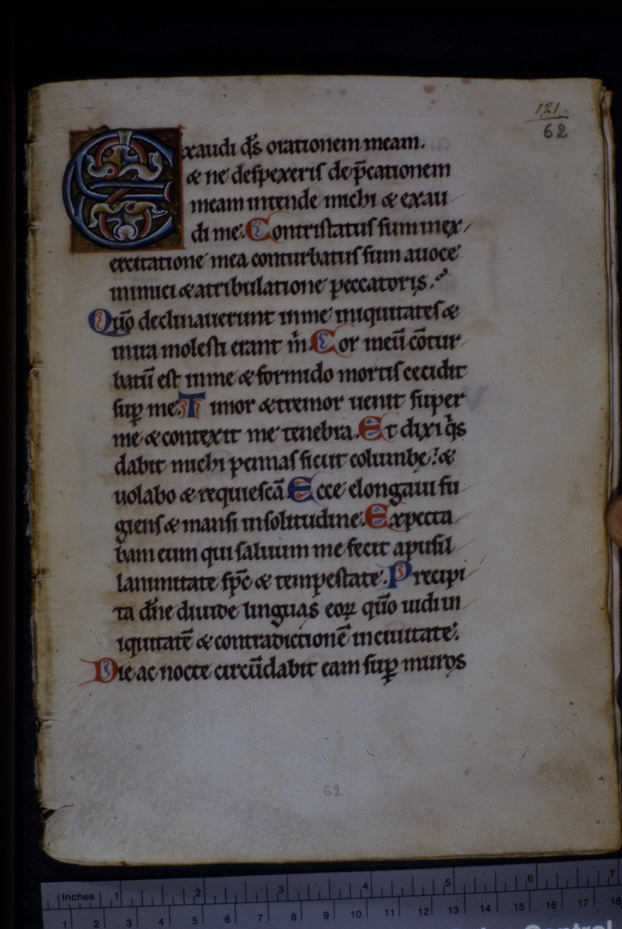 121.
62
Exaudi ds̄ orationem meam.
& ne despexeris dep̄cationem
meam intende michi & exau
di me. Contristatus sum inex
ercitatione mea conturbatus sum auoce
inimici & atribulatione peccatoris.
Quō declinauerunt inme iniquitates &
inira molesti erant m̄. Cor meū cōtur
batū est inme & formido mortis cecidit
sup̄ me. Timor & tremor uenit super
me & contexit me tenebra. Et dixi q̄s
dabit michi pennas sicut columbe! &
uolabo & requiescā Ecce elongaui fu
giens & mansi insolitudine. Expecta
bam eum qui saluum me fecit apusil
lanimitate sp̄c & tempestate. Precipi
ta dn̄e diuide linguas eoꝝ quō uidi in
iquitatē & contradictionē inciuitate.
Die ac nocte circūdabit eam sup̄ muros
62
Inches 1 2 3 4 5 6 7
1 2 3 4 5 6 7 8 9 10 11 12 13 14 15 16 17 18
Control